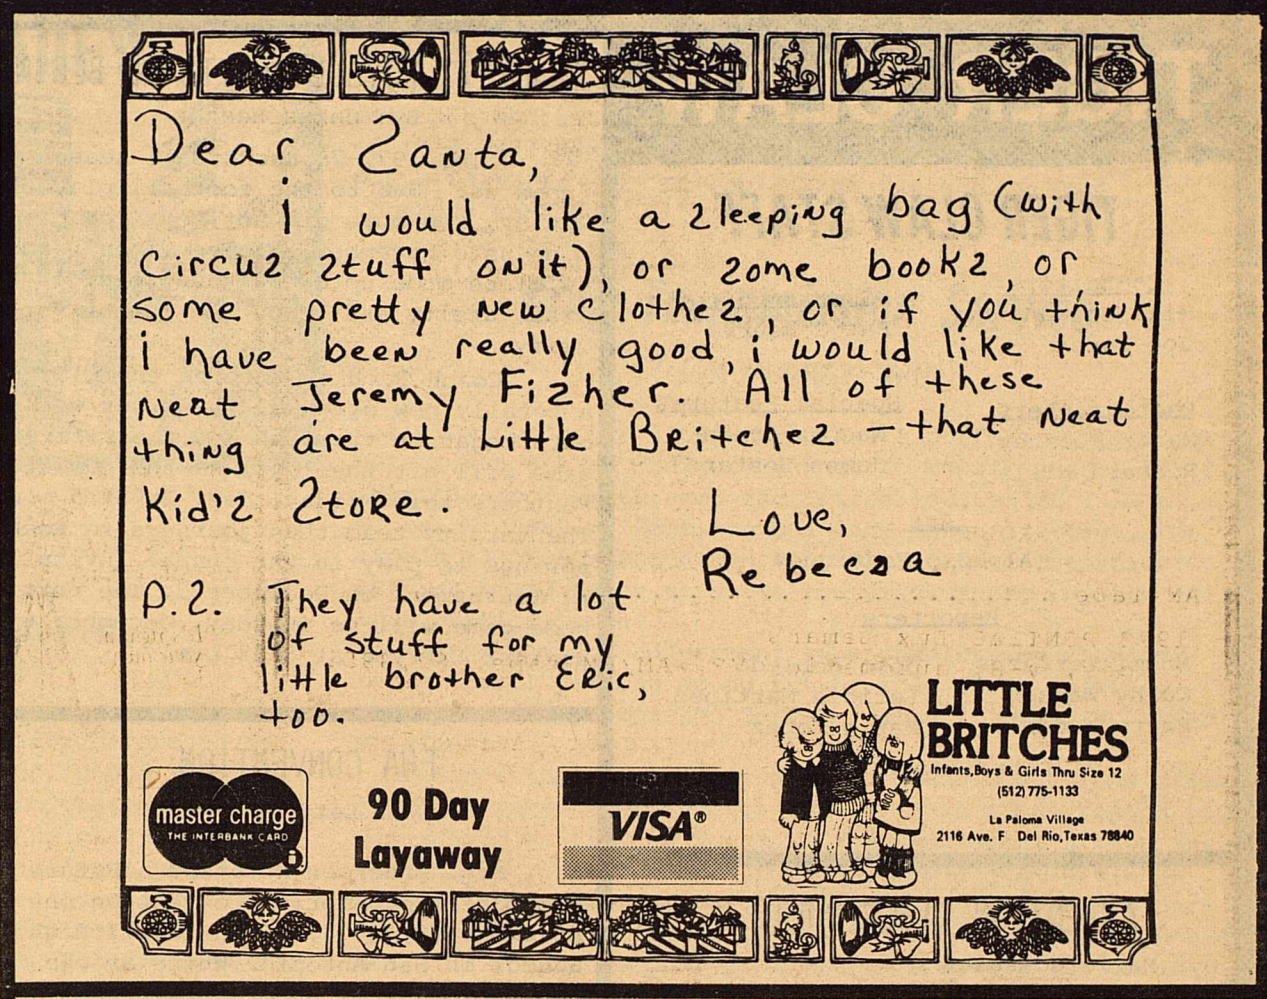 Dear 2anta,
i would like a 2leeping bag (with
circu2 2tuff on it), or 2ome book2, or
some pretty new clothe2, or if you think
i have been really good, i would like that
neat Jeremy Fi2her. All of these
thing are at Little Britche2 - that neat
Kid'2 2tore.
Love,
Rebecca
P.2. They have a lot
of stuff for my
little brother Eric,
too.
master charge
THE INTERBANK CARD
90 Day
Layaway
VISA®
LITTLE
BRITCHES
Infants, Boys & Girls Thru Size 12
(512) 775-1133
La Paloma Village
2116 Ave. F Del Rio, Texas 78840